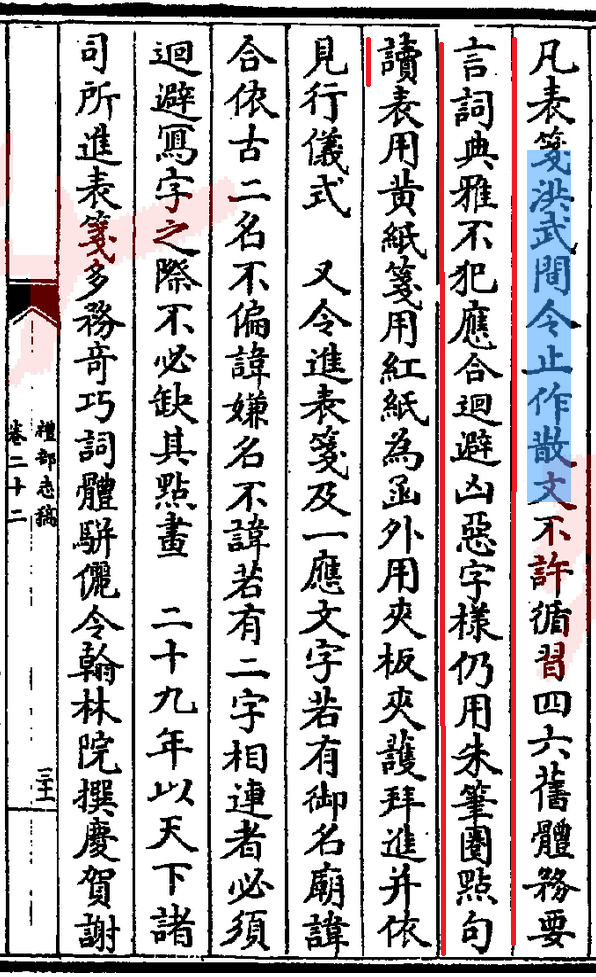 凡表箋洪武間令止作散文不許循習四六舊體務要
言詞典雅不犯應合迴避凶惡字樣仍用朱筆圈點句
讀表用黃紙箋用紅紙為函外用夾板夾護拜進并依
見行儀式　又令進表箋及一應文字若有御名廟諱
合依古二名不偏諱嫌名不諱若有二字相連者必須
迴避寫字之際不必缺其點畫　二十九年以天下諸
司所進表箋多務奇巧詞體駢儷令翰林院撰慶賀謝
禮部志稿
卷二十二
三十